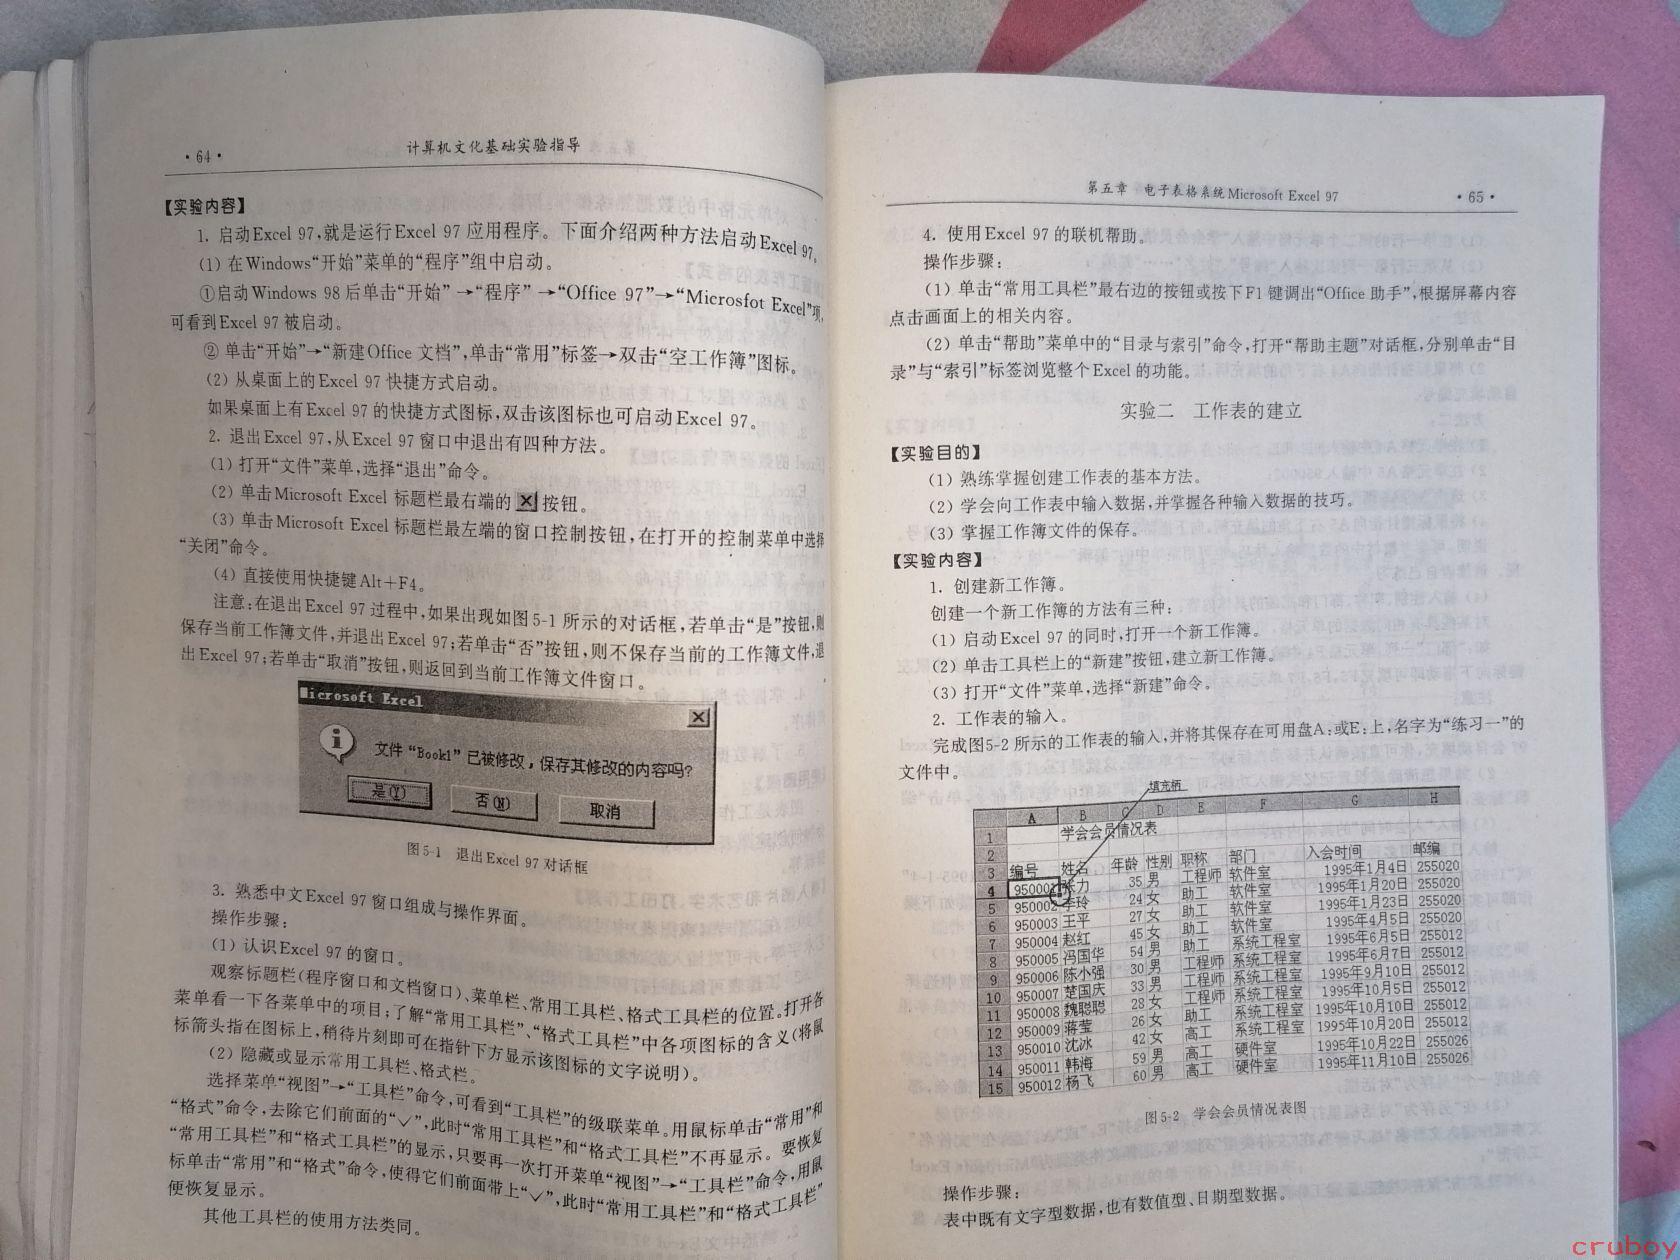 ·64·
计算机文化基础实验指导
【实验内容】
1. 启动Excel 97,就是运行Excel 97 应用程序。下面介绍两种方法启动Excel 97。
(1) 在Windows“开始”菜单的“程序”组中启动。
①启动Windows 98后单击“开始”→“程序”→“Office 97”→“Microsfot Excel”项,
可看到Excel 97 被启动。
② 单击“开始”→“新建Office 文档”,单击“常用”标签→双击“空工作簿”图标。
(2) 从桌面上的Excel 97 快捷方式启动。
如果桌面上有Excel 97 的快捷方式图标,双击该图标也可启动Excel 97。
2. 退出Excel 97,从Excel 97 窗口中退出有四种方法。
(1) 打开“文件”菜单,选择“退出”命令。
(2) 单击Microsoft Excel 标题栏最右端的 X 按钮。
(3) 单击Microsoft Excel 标题栏最左端的窗口控制按钮,在打开的控制菜单中选择
“关闭”命令。
(4) 直接使用快捷键Alt+F4。
注意:在退出Excel 97 过程中,如果出现如图5-1 所示的对话框,若单击“是”按钮,则
保存当前工作簿文件,并退出Excel 97;若单击“否”按钮,则不保存当前的工作簿文件,退
出Excel 97;若单击“取消”按钮,则返回到当前工作簿文件窗口。
Microsoft Excel
文件“Book1”已被修改,保存其修改的内容吗?
是(Y) 否(N) 取消
图5-1 退出Excel 97 对话框
3. 熟悉中文Excel 97 窗口组成与操作界面。
操作步骤:
(1) 认识Excel 97的窗口。
观察标题栏(程序窗口和文档窗口)、菜单栏、常用工具栏、格式工具栏的位置。打开各
菜单看一下各菜单中的项目;了解“常用工具栏”、“格式工具栏”中各项图标的含义(将鼠
标箭头指在图标上,稍待片刻即可在指针下方显示该图标的文字说明)。
(2) 隐藏或显示常用工具栏、格式栏。
选择菜单“视图”→“工具栏”命令,可看到“工具栏”的级联菜单。用鼠标单击“常用”和
“格式”命令,去除它们前面的“√”,此时“常用工具栏”和“格式工具栏”不再显示。要恢复
“常用工具栏”和“格式工具栏”的显示,只要再一次打开菜单“视图”→“工具栏”命令,用鼠
标单击“常用”和“格式”命令,使得它们前面带上“√”,此时“常用工具栏”和“格式工具栏”
便恢复显示。
其他工具栏的使用方法类同。
第五章 电子表格系统Microsoft Excel 97
·65·
4. 使用Excel 97 的联机帮助。
操作步骤:
(1) 单击“常用工具栏”最右边的按钮或按下F1 键调出“Office 助手”,根据屏幕内容
点击画面上的相关内容。
(2) 单击“帮助”菜单中的“目录与索引”命令,打开“帮助主题”对话框,分别单击“目
录”与“索引”标签浏览整个Excel 的功能。
实验二 工作表的建立
【实验目的】
(1) 熟练掌握创建工作表的基本方法。
(2) 学会向工作表中输入数据,并掌握各种输入数据的技巧。
(3) 掌握工作簿文件的保存。
【实验内容】
1. 创建新工作簿。
创建一个新工作簿的方法有三种:
(1) 启动Excel 97 的同时,打开一个新工作簿。
(2) 单击工具栏上的“新建”按钮,建立新工作簿。
(3) 打开“文件”菜单,选择“新建”命令。
2. 工作表的输入。
完成图5-2 所示的工作表的输入,并将其保存在可用盘A:或E:上,名字为“练习一”的
文件中。
填充柄
A B C D E F G H
1 学会会员情况表
2
3 编号 姓名 年龄 性别 职称 部门 入会时间 邮编
4 950001 张力 35 男 工程师 软件室 1995年1月4日 255020
5 950002 李玲 24 女 助工 软件室 1995年1月20日 255020
6 950003 王平 27 女 助工 软件室 1995年1月23日 255020
7 950004 赵红 45 女 助工 软件室 1995年4月5日 255020
8 950005 冯国华 54 男 助工 系统工程室 1995年6月5日 255012
9 950006 陈小强 30 男 工程师 系统工程室 1995年6月7日 255012
10 950007 楚国庆 33 男 工程师 系统工程室 1995年9月10日 255012
11 950008 魏聪聪 28 女 工程师 系统工程室 1995年10月5日 255012
12 950009 蒋莹 26 女 助工 系统工程室 1995年10月10日 255012
13 950010 沈冰 42 女 高工 系统工程室 1995年10月20日 255012
14 950011 韩海 59 男 高工 硬件室 1995年10月22日 255026
15 950012 杨飞 60 男 高工 硬件室 1995年11月10日 255026
图5-2 学会会员情况表图
操作步骤:
表中既有文字型数据,也有数值型、日期型数据。
cruboy